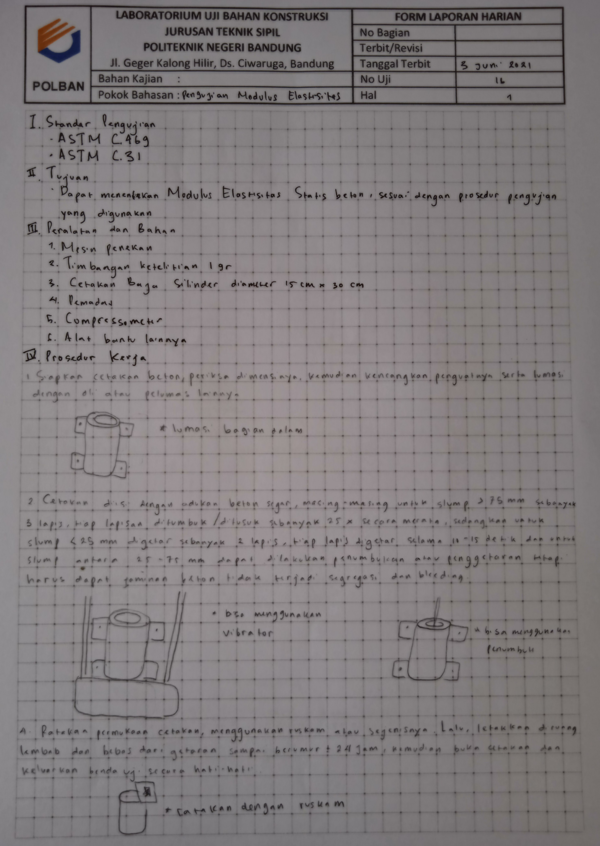 LABORATORIUM UJI BAHAN KONSTRUKSI
JURUSAN TEKNIK SIPIL
POLITEKNIK NEGERI BANDUNG
Jl. Geger Kalong Hilir, Ds. Ciwaruga, Bandung
POLBAN
Bahan Kajian :
Pokok Bahasan : Pengujian Modulus Elastisitas
FORM LAPORAN HARIAN
No Bagian
Terbit/Revisi
Tanggal Terbit 5 Juni 2021
No Uji 16
Hal 1
I. Standar Pengujian
- ASTM C.469
- ASTM C.31
II. Tujuan
- Dapat menentukan Modulus Elastisitas Statis beton, sesuai dengan prosedur pengujian
yang digunakan
III. Peralatan dan Bahan
1. Mesin penekan
2. Timbangan ketelitian 1 gr
3. Cetakan Baja Silinder diameter 15 cm x 30 cm
4. Pemadat
5. Compressometer
6. Alat bantu lainnya
IV. Prosedur Kerja
1. Siapkan cetakan beton, periksa dimensinya, kemudian kencangkan penguatnya serta lumasi
dengan oli atau pelumas lainnya
* lumasi bagian dalam
2. Cetakan diisi dengan adukan beton segar, masing-masing untuk slump > 75 mm sebanyak
3 lapis, tiap lapisan ditumbuk / ditusuk sebanyak 25 x secara merata, sedangkan untuk
slump < 25 mm digetar sebanyak 2 lapis, tiap lapis digetar selama 10-15 detik dan untuk
slump antara 25-75 mm dapat dilakukan penumbukan atau penggetaran tetap
harus dapat jaminan beton tidak terjadi segregasi dan bleeding
* bisa menggunakan
vibrator
* bisa menggunakan
penumbuk
4. Ratakan permukaan cetakan, menggunakan ruskam atau sejenisnya. Lalu, letakkan diruang
lembab dan bebas dari getaran sampai berumur ± 24 jam, kemudian buka cetakan dan
keluarkan benda uji secara hati-hati
* ratakan dengan ruskam